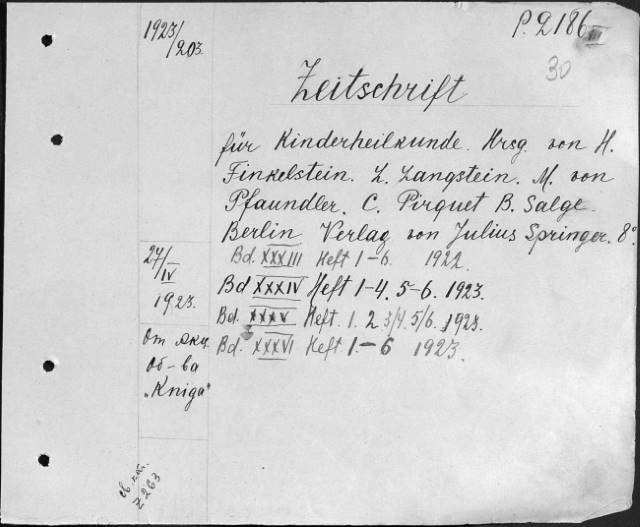 1923/203.
P. 2186 III
30
Zeitschrift
für Kinderheilkunde. Hrsg. von H.
Finkelstein. L. Langstein. M. von
Pfaundler. C. Pirquet B. Salge.
Berlin Verlag von Julius Springer. 8°.
Bd. XXXIII Heft 1-6. 1922.
Bd XXXIV Heft 1-4. 5-6. 1923.
Bd. XXXV Heft. 1. 2 3/4. 5/6. 1923.
Bd. XXXVI Heft. 1.-6 1923.
27/IV
1923.
От акц.
об-ва
„Kniga"
Z 263